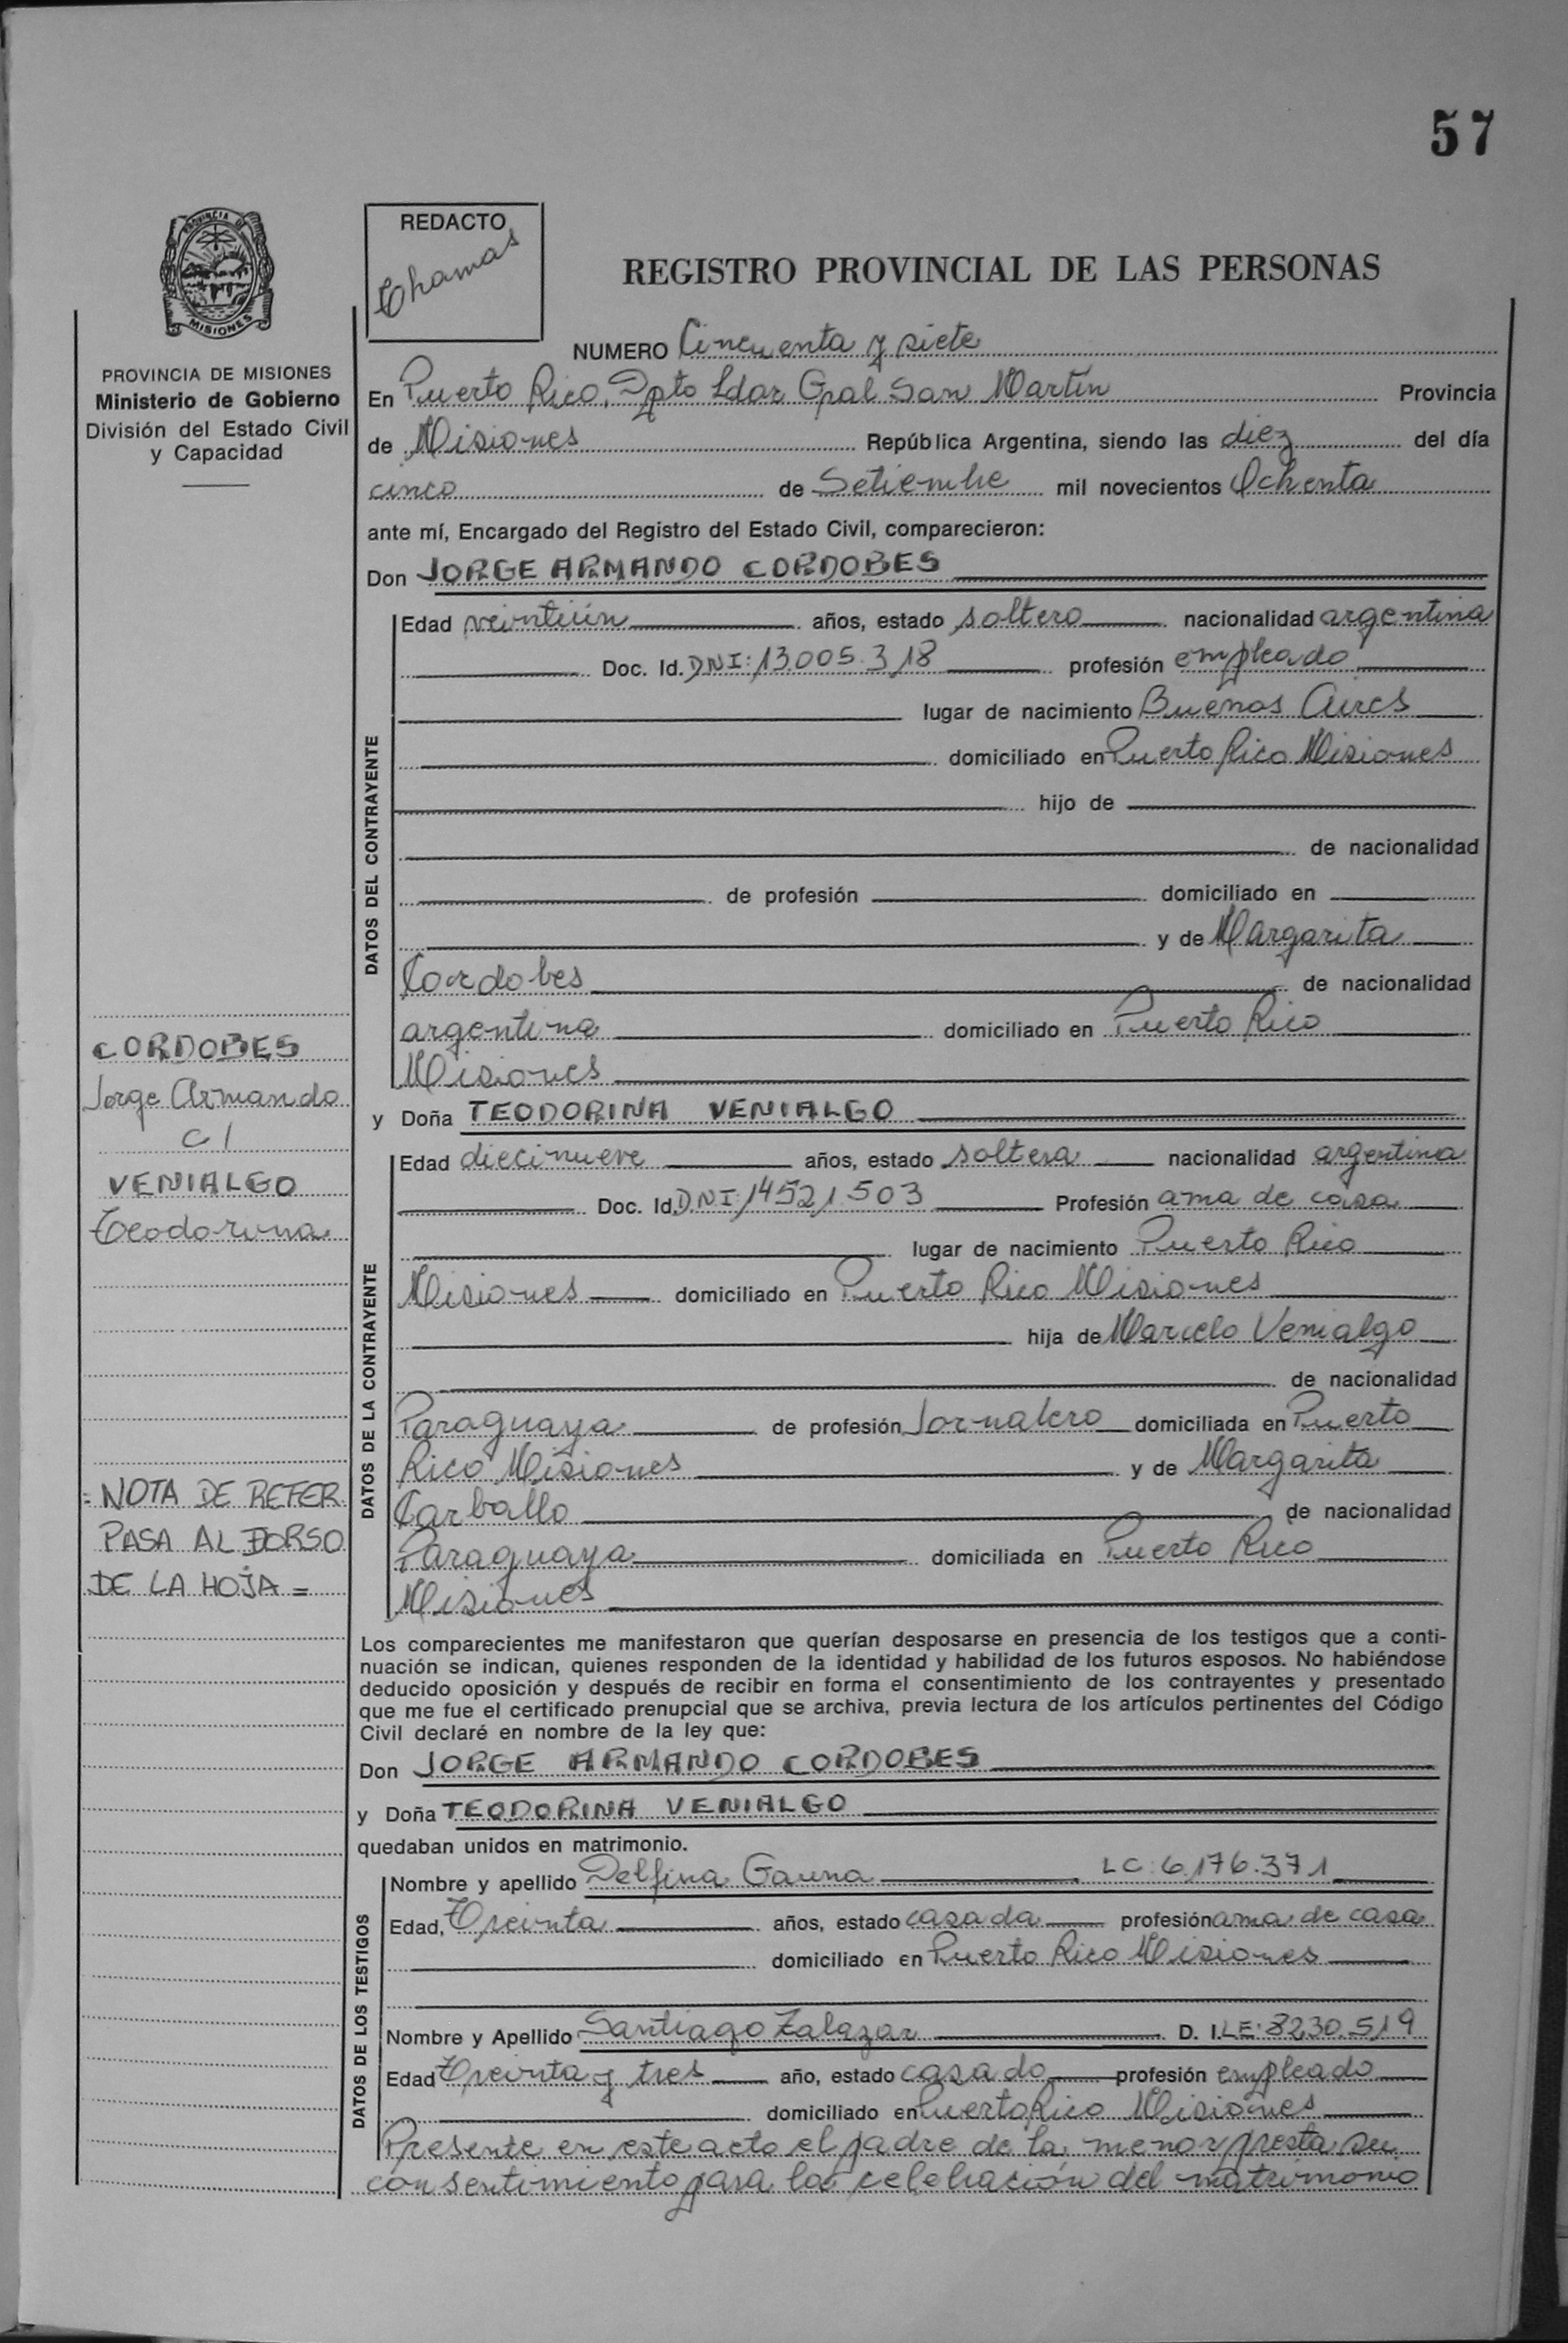 57
PROVINCIA DE
MISIONES
REDACTO
Chamas
REGISTRO PROVINCIAL DE LAS PERSONAS
PROVINCIA DE MISIONES
Ministerio de Gobierno
División del Estado Civil
y Capacidad
NUMERO Cincuenta y siete
En Puerto Rico, Dpto Ldor Gral San Martín Provincia
de Misiones República Argentina, siendo las diez del día
cinco de Setiembre mil novecientos Ochenta
ante mí, Encargado del Registro del Estado Civil, comparecieron:
Don JORGE ARMANDO CORDOBES
DATOS DEL CONTRAYENTE
Edad veintiún años, estado soltero nacionalidad argentina
Doc. Id. DNI: 13.005.318 profesión empleado
lugar de nacimiento Buenos Aires
domiciliado en Puerto Rico Misiones
hijo de
de nacionalidad
de profesión domiciliado en
y de Margarita
Cordobes de nacionalidad
argentina domiciliado en Puerto Rico
Misiones
CORDOBES
Jorge Armando
C/
VENIALGO
Teodorina
y Doña TEODORINA VENIALGO
DATOS DE LA CONTRAYENTE
Edad diecinueve años, estado soltera nacionalidad argentina
Doc. Id. D.N.I: 14521.503 Profesión ama de casa
lugar de nacimiento Puerto Rico
Misiones domiciliado en Puerto Rico Misiones
hija de Marcelo Venialgo
de nacionalidad
Paraguaya de profesión Jornalero domiciliada en Puerto
Rico Misiones y de Margarita
Carballo de nacionalidad
Paraguaya domiciliada en Puerto Rico
Misiones
= NOTA DE REFER.
PASA AL DORSO
DE LA HOJA =
Los comparecientes me manifestaron que querían desposarse en presencia de los testigos que a conti-
nuación se indican, quienes responden de la identidad y habilidad de los futuros esposos. No habiéndose
deducido oposición y después de recibir en forma el consentimiento de los contrayentes y presentado
que me fue el certificado prenupcial que se archiva, previa lectura de los artículos pertinentes del Código
Civil declaré en nombre de la ley que:
Don JORGE ARMANDO CORDOBES
y Doña TEODORINA VENIALGO
quedaban unidos en matrimonio.
DATOS DE LOS TESTIGOS
Nombre y apellido Delfina Gauna LC: 6.176.371
Edad, Treinta años, estado casada profesión ama de casa
domiciliado en Puerto Rico Misiones
Nombre y Apellido Santiago Zalazar D. I. LE: 8230.519
Edad Treinta y tres año, estado casado profesión empleado
domiciliado en Puerto Rico Misiones
Presente en este acto el padre de la menor presta su
consentimiento para la celebración del matrimonio